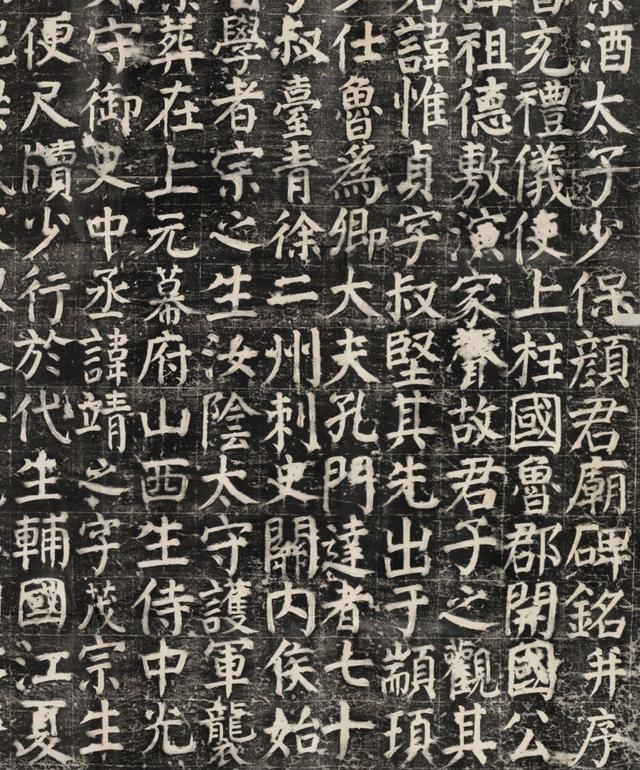 酒太子少保顏君廟碑銘并序
充禮儀使上柱國魯郡開國公
祖德敷演家聲故君子之觀其
諱惟貞字叔堅其先出于顓頊
仕魯爲卿大夫孔門達者七十
叔臺青徐二州刺史關内侯始
學者宗之生汝陰太守護軍襲
葬在上元幕府山西生侍中光
守御史中丞諱靖之字茂宗生
便尺牘少行於代生輔國江夏